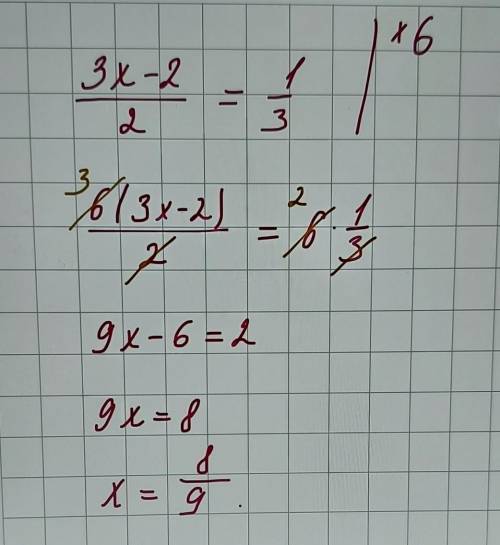 (3x-2)/2 = 1/3 | ×6
3 6(3x-2)/2 = 2 6 · 1/3
9x-6=2
9x=8
x = 8/9.